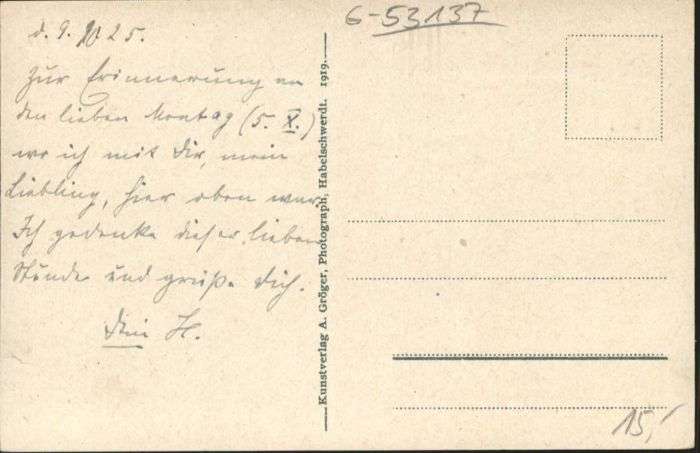 d. 9. 10 25.
Zur Erinnerung an
den lieben Montag (5. X.)
wo ich mit Dir, mein
Liebling, hier oben war.
Ich gedenke dieser lieben
Stunde und grüße Dich.
Dein H.
Kunstverlag A. Gröger, Photograph, Habelschwerdt. 1919.
6-53137
15,-